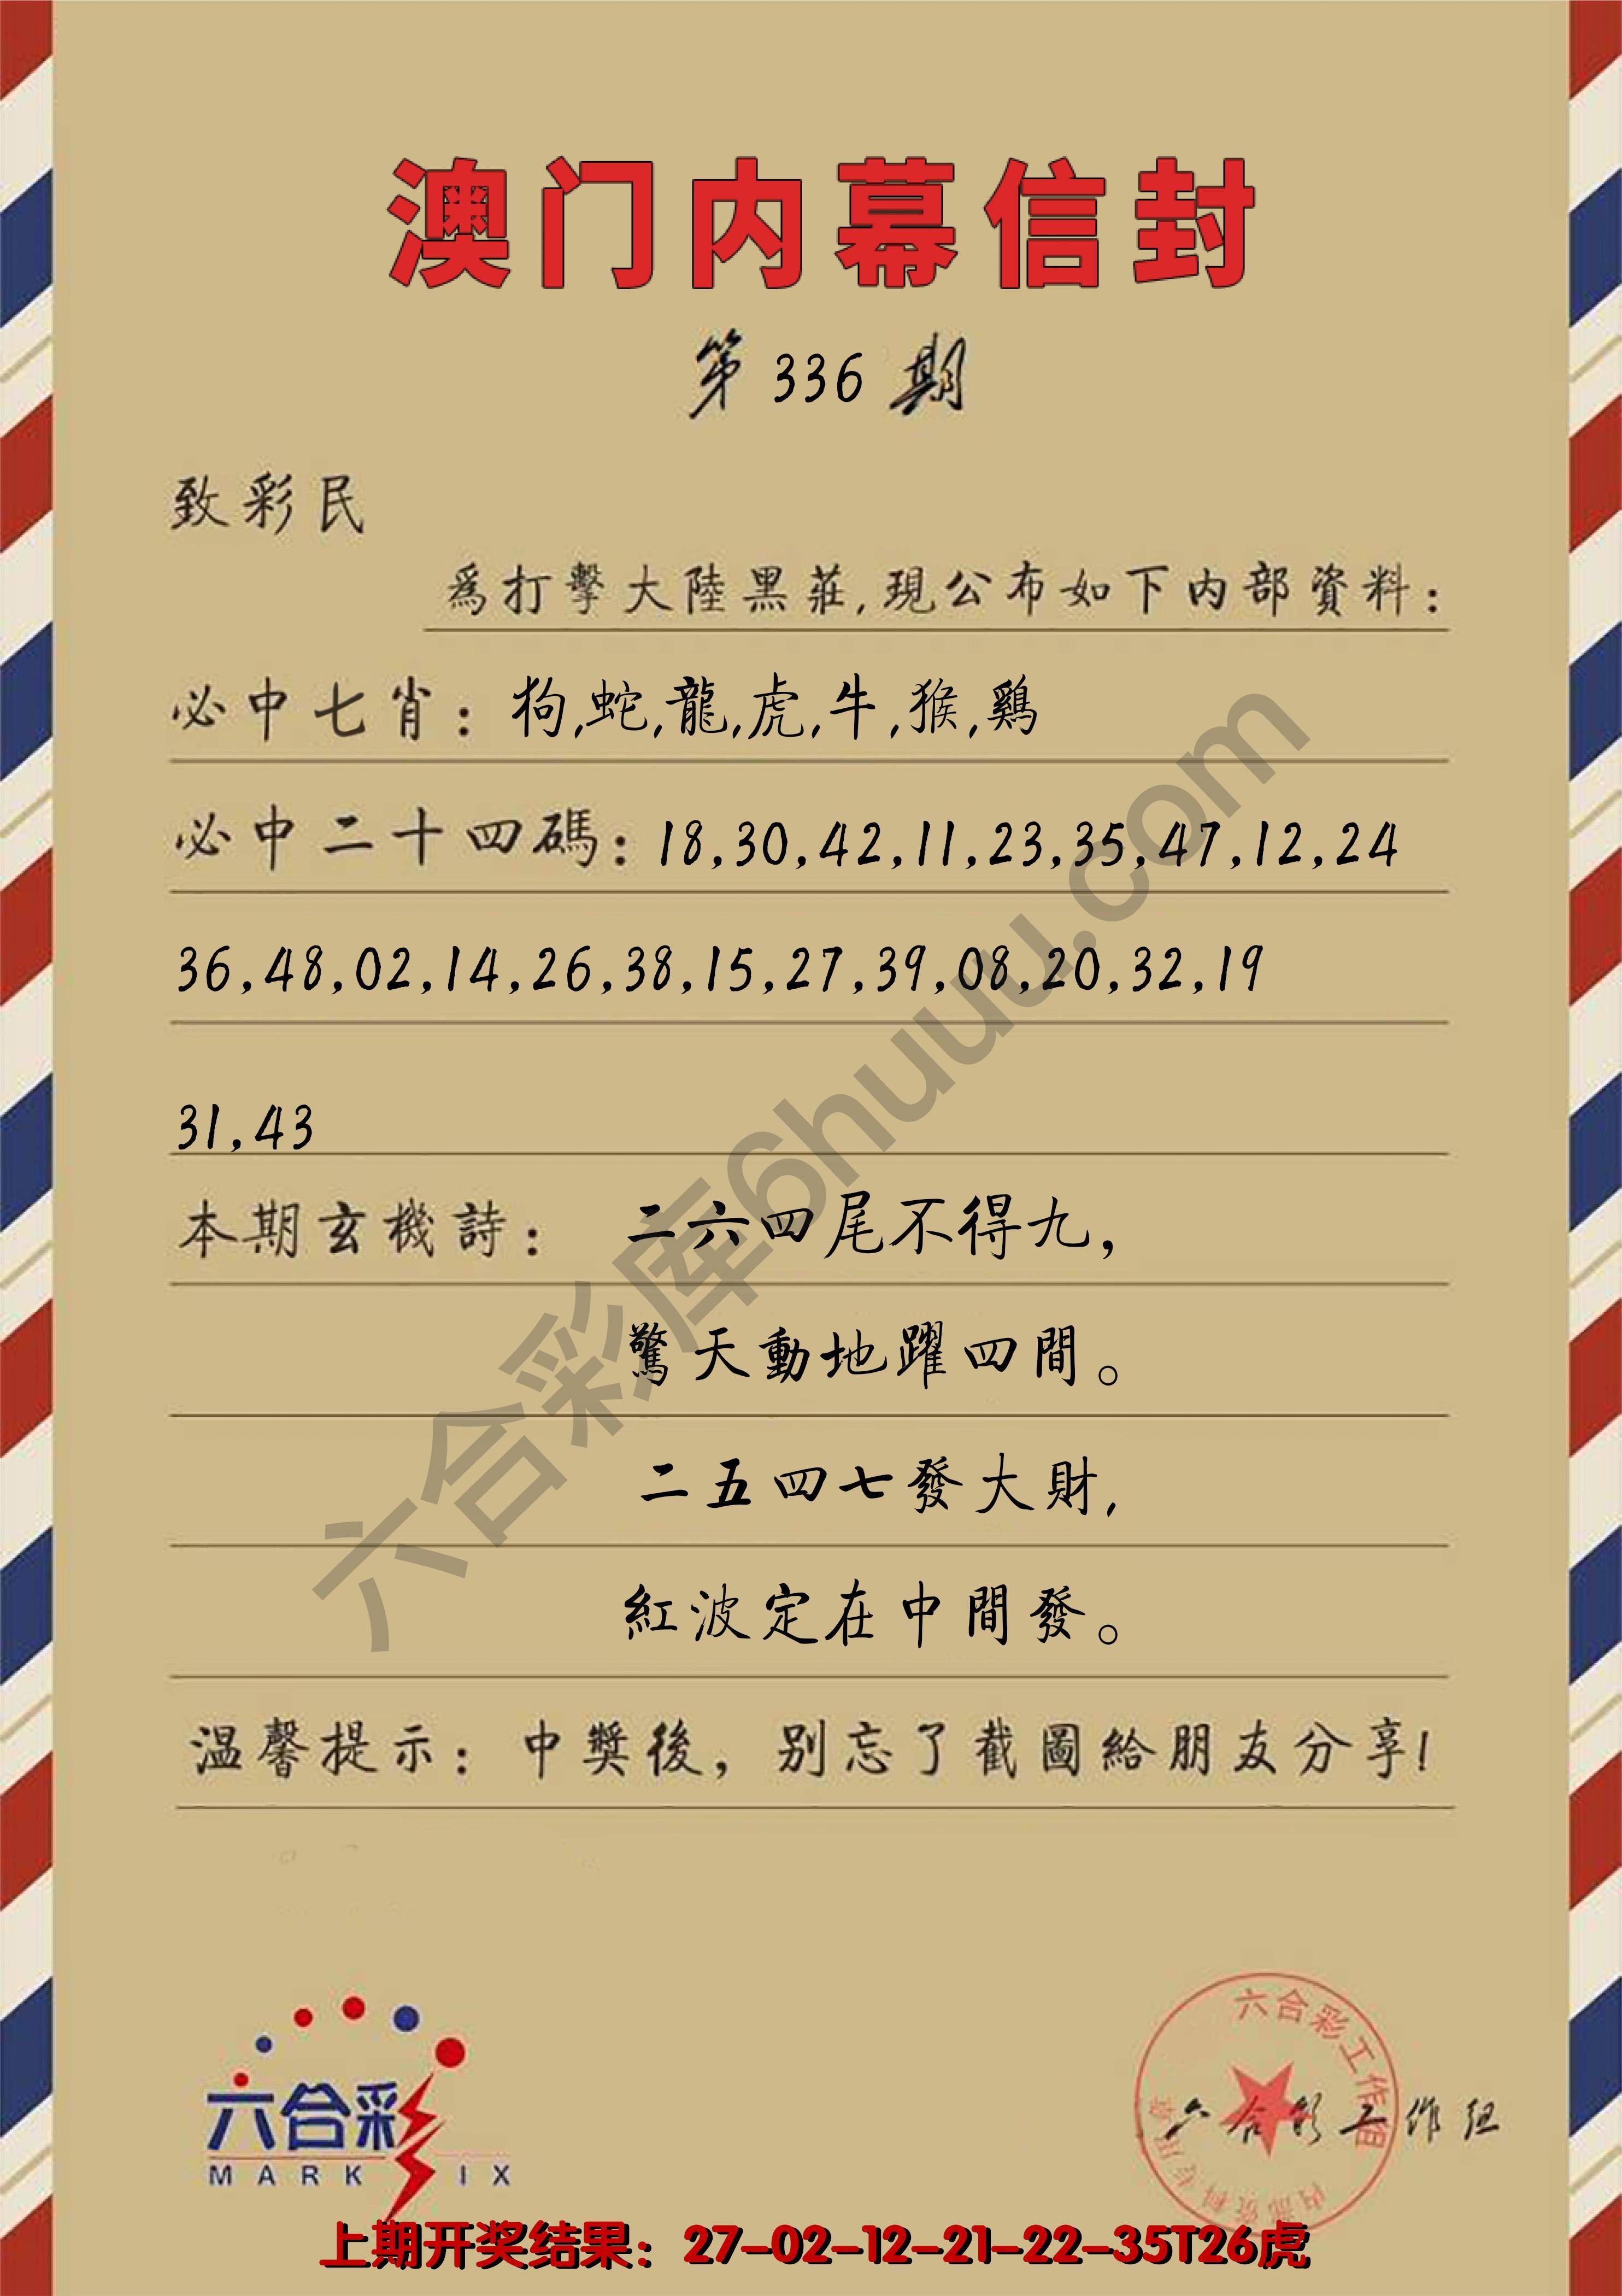 澳门内幕信封
第 336 期
致彩民
爲打擊大陸黑莊,現公布如下内部資料:
必中七肖: 狗,蛇,龍,虎,牛,猴,鷄
必中二十四碼: 18,30,42,11,23,35,47,12,24
36,48,02,14,26,38,15,27,39,08,20,32,19
31,43
本期玄機詩: 二六四尾不得九,
驚天動地躍四間。
二五四七發大財,
紅波定在中間發。
温馨提示: 中獎後, 别忘了截圖給朋友分享!
六合彩库6huuu.com
六合彩
MARK SIX
六合彩工作组
内部资料专用章
六合彩工作组
上期开奖结果: 27-02-12-21-22-35T26虎